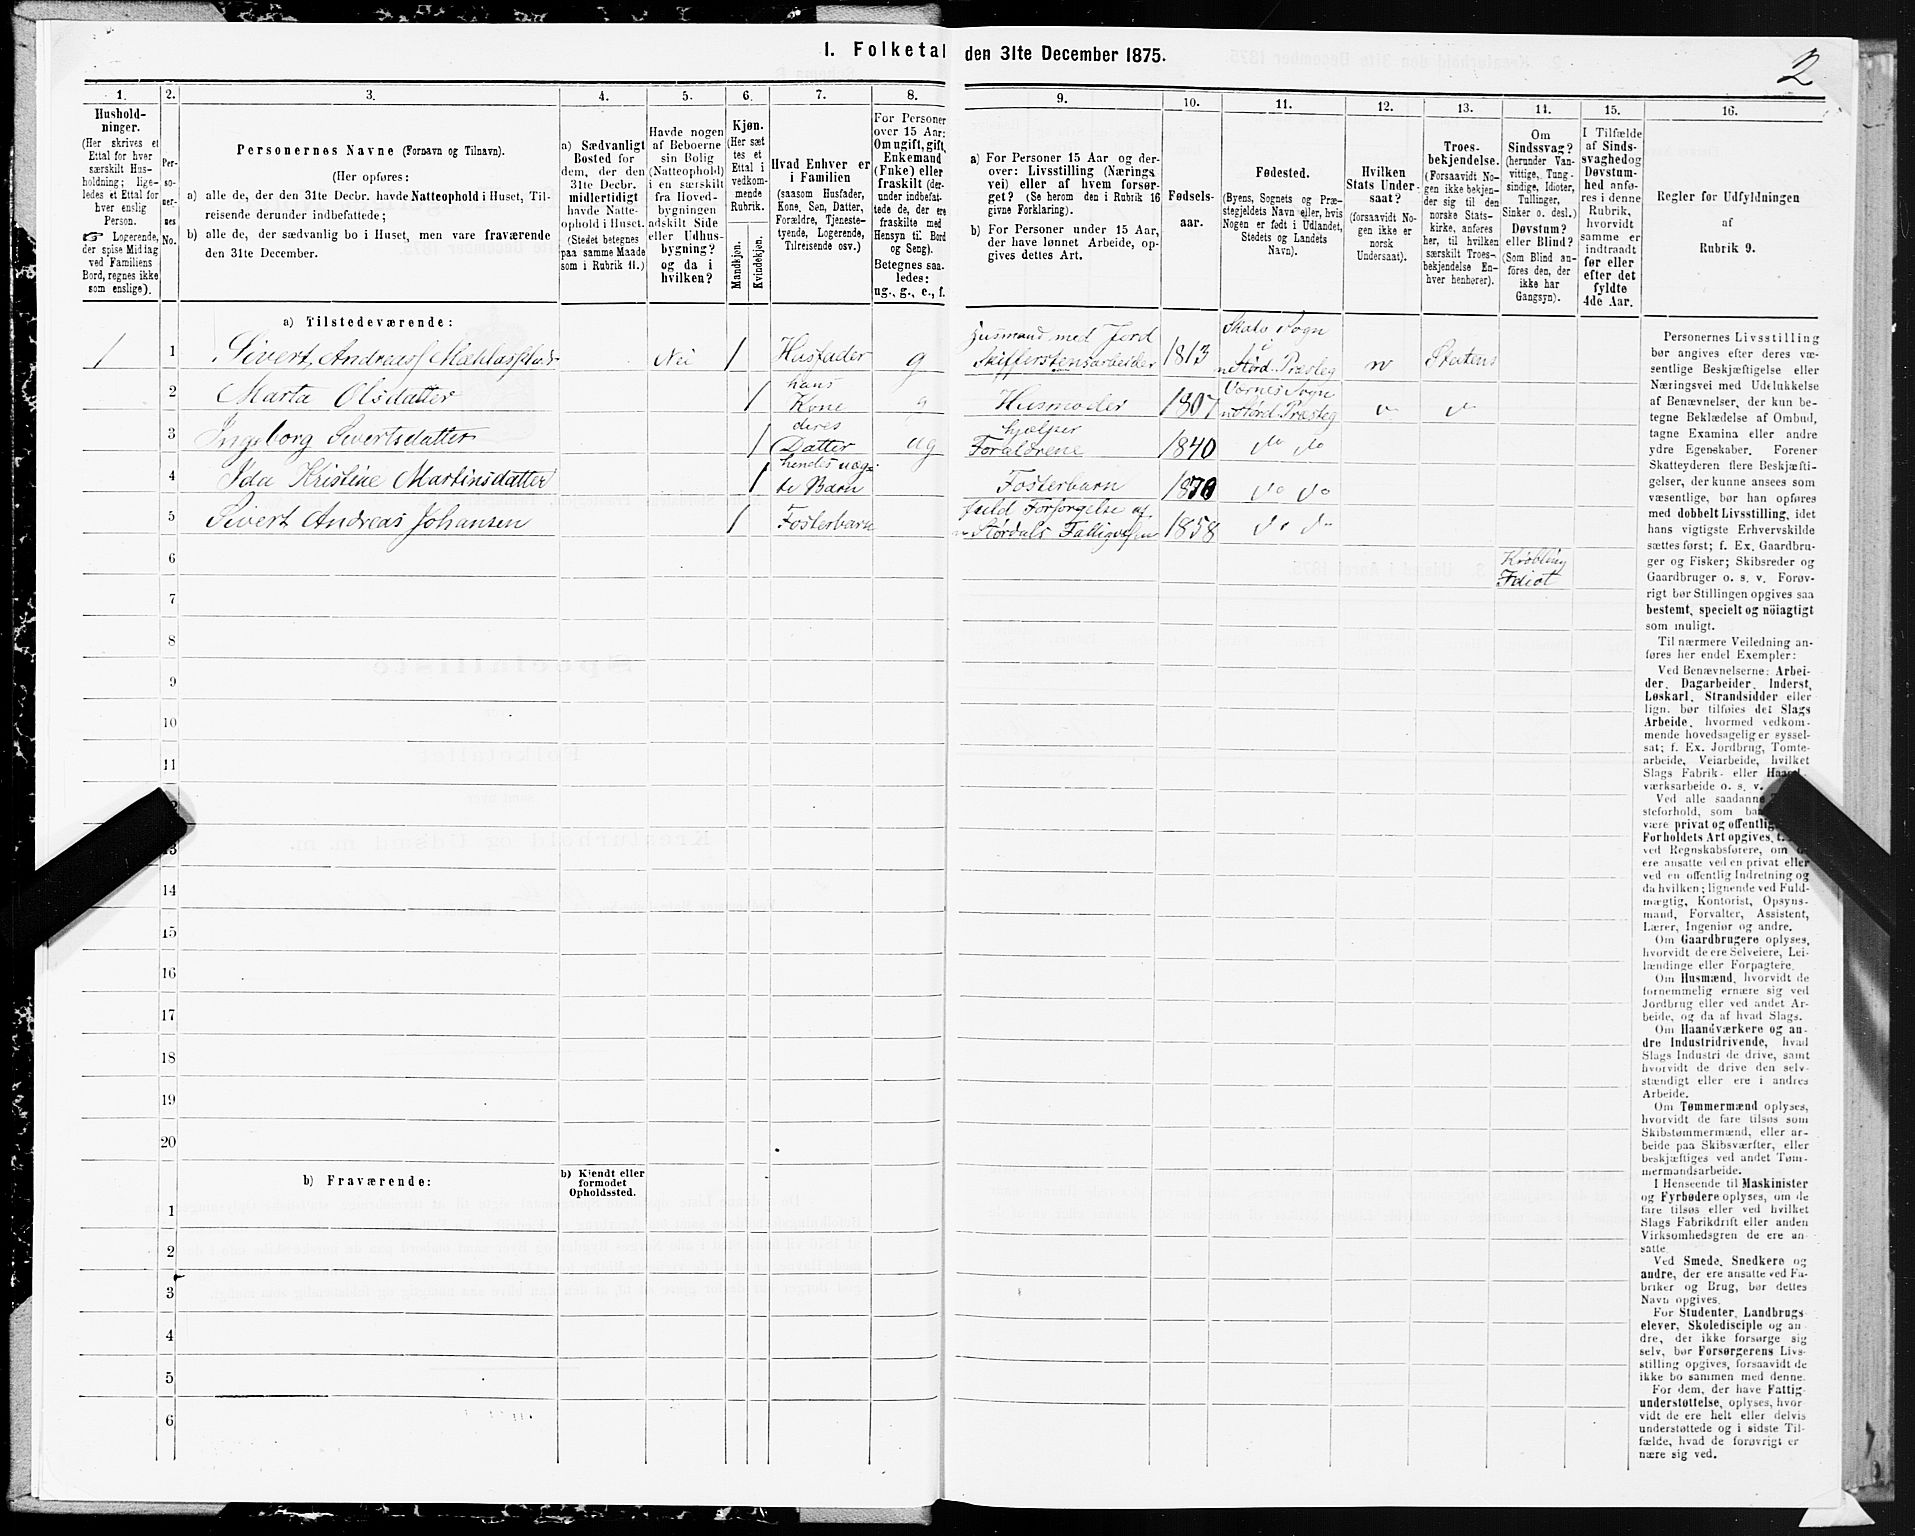 I. Folketal den 31te December 1875.
2
1.
Hushold-
ninger.
(Her skrives et
Ettal for hver
særskilt Hus-
holdning; lige-
ledes et Ettal for
hver enslig
Person.
☞ Logerende,
der spise Middag
ved Familiens
Bord, regnes ikke
som enslige).
2.
Per-
so-
ner-
nes
No.
3.
Personernes Navne (Fornavn og Tilnavn).
(Her opføres:
a) alle de, der den 31te Decbr. havde Natteophold i Huset, Til-
reisende derunder indbefattede;
b) alle de, der sædvanlig bo i Huset, men vare fraværende
den 31te December.
4.
a) Sædvanligt
Bosted for
dem, der den
31te Decbr.
midlertidigt
havde Natte-
ophold i Huset.
(Stedet betegnes
paa samme Maade
som i Rubrik 11.)
5.
Havde nogen
af Beboerne
sin Bolig
(Natteophold)
i en særskilt
fra Hoved-
bygningen
adskilt Side
eller Udhus-
bygning?
og da i
hvilken?
6.
Kjøn.
(Her sæt
tes et
Ettal i
vedkom-
mende
Rubrik.
Mandkjøn.
Kvindekjøn.
7.
Hvad Enhver er
i Familien
(saasom Husfader,
Kone, Søn, Datter,
Forældre, Tjeneste-
tyende, Logerende,
Tilreisende osv.)
8.
For Personer
over 15 Aar:
Om ugift, gift,
Enkemand
(Enke) eller
fraskilt (der-
under indbefat-
tede de, der ere
fraskilte med
Hensyn til Bord
og Seng).
Betegnes saa-
ledes:
ug., g., e., f.
9.
a) For Personer 15 Aar og der-
over: Livsstilling (Nærings
vei) eller af hvem forsør-
get? (Se herom den i Rubrik 16
givne Forklaring).
b) For Personer under 15 Aar,
der have lønnet Arbeide, op-
gives dettes Art.
10.
Fødsels-
aar.
11.
Fødested.
(Byens, Sognets og Præ-
stegjeldets Navn eller, hvis
Nogen er født i Udlandet,
Stedets og Landets
Navn).
12.
Hvilken
Stats Under-
saat?
(forsaavidt No-
gen ikke er
norsk
Undersaat).
13.
Troes-
bekjendelse.
(Forsaavidt No-
gen ikke bekjen-
der sig til den
norske Stats-
kirke, anføres
her, til hvilken
særskilt Troes-
bekjendelse En-
hver henhører).
14.
Om
Sindssvag?
(herunder Van-
vittige, Tung-
sindige, Idioter,
Tullinger,
Sinker o. desl.)
Døvstum?
eller Blind?
(Som Blind an-
føres den, der
ikke har
Gangsyn).
15.
I Tilfælde
af Sinds-
svaghed og
Døvstum-
hed anfø-
res i denne
Rubrik,
hvorvidt
samme er
indtraadt
før eller
efter det
fyldte
4de Aar.
16.
Regler for Udfyldningen
af
Rubrik 9.
a) Tilstedeværende:
1 1 Sivert Andreas Nei 1 Husfader g Husmand med Jord Skifferstensarbeider 1813 Skato Sogn i n Størd. Præsteg n Statens
2 Marta Olsdatter 1 hans Kone g Husmoder 1807 Værnes Sogn n Størd Præsteg do do
3 Ingeborg Sivertsdatter 1 deres Datter ug hjælper Forældrene 1840 do do
4 Ida Kristine Martinsdatter 1 hendes uæg- te Barn Fosterbarn 1870 do do
5 Sivert Andreas Johansen 1 Fosterbarn fuld Forsørgelse af n Størdals Fattigvæsen 1858 do do
6 Krøbling
7 Idiot
8
9
10
11
13
14
15
16
17
18
19
20
b) Fraværende:
b) Kjendt eller
formodet
Opholdssted.
1
2
3
4
5
6
Personernes Livsstilling
bør angives efter deres væ-
sentlige Beskjæftigelse eller
Næringsvei med Udelukkelse
af Benævnelser, der kun be-
tegne Beklædelse af Ombud,
tagne Examina eller andre
ydre Egenskaber. Forener
Skatteyderen flere Beskjæfti-
gelser, der kunne ansees som
væsentlige, bør han opføres
med dobbelt Livsstilling, idet
hans vigtigste Erhvervskilde
sættes først; f. Ex. Gaardbru-
ger og Fisker; Skibsreder og
Gaardbruger o. s. v. Forøv-
rigt bør Stillingen opgives saa
bestemt, specielt og nöiagtigt
som muligt.
Til nærmere Veiledning an-
føres her endel Exempler:
Ved Benævnelserne: Arbei-
der, Dagarbeider, Inderst,
Løskarl, Strandsidder eller
lign. bør tilføies det Slags
Arbeide, hvormed vedkom-
mende hovedsagelig er syssel-
sat; f. Ex. Jordbrug, Tomte-
arbeide, Veiarbeide, hvilket
Slags Fabrik- eller Haand-
værksarbeide o. s. v.
Ved alle saadanne
steforhold, som
være privat og offentlig
Forholdets Art opgives,
ved Regnskabsførere, om
ere ansatte ved en privat eller
ved en offentlig Indretning og
da hvilken; lignende ved Fuld-
mægtig, Kontorist, Opsyns-
mand, Forvalter, Assistent,
Lærer, Ingeniør og andre.
Om Gaardbrugere oplyses,
hvorvidt de ere Selveiere, Lei-
lændinge eller Forpagtere.
Om Husmænd, hvorvidt de
fornemmelig ernære sig ved
Jordbrug eller ved andet Ar-
beide, og da af hvad Slags.
Om Haandværkere og an-
dre Industridrivende, hvad
Slags Industri de drive, samt
hvorvidt de drive den selv-
stændigt eller ere i andres
Arbeide.
Om Tømmermænd oplyses,
hvorvidt de fare tilsøs som
Skibstømmermænd, eller ar-
beide paa Skibsværfter, eller
beskjæftiges ved andet Tøm-
mermandsarbeide.
I Henseende til Maskinister
og Fyrbødere oplyses, om de
fare tilsøs eller ved hvilket
Slags Fabrikdrift eller anden
Virksomhedsgren de ere an-
satte.
Ved Smede, Snedkere og
andre, der ere ansatte ved Fa-
briker og Brug, bør dettes
Navn opgives.
For Studenter, Landbrugs
elever, Skoledisciple og an
dre, der ikke forsørge sig
selv, bør Forsørgerens Livs-
stilling opgives, forsaavidt de
ikke bo sammen med denne.
For dem, der have Fattig-
understøttelse, oplyses, hvor
vidt de ere helt eller delvis
understøttede og i sidste Til-
fælde, hvad de forøvrigt er
nære sig ved.